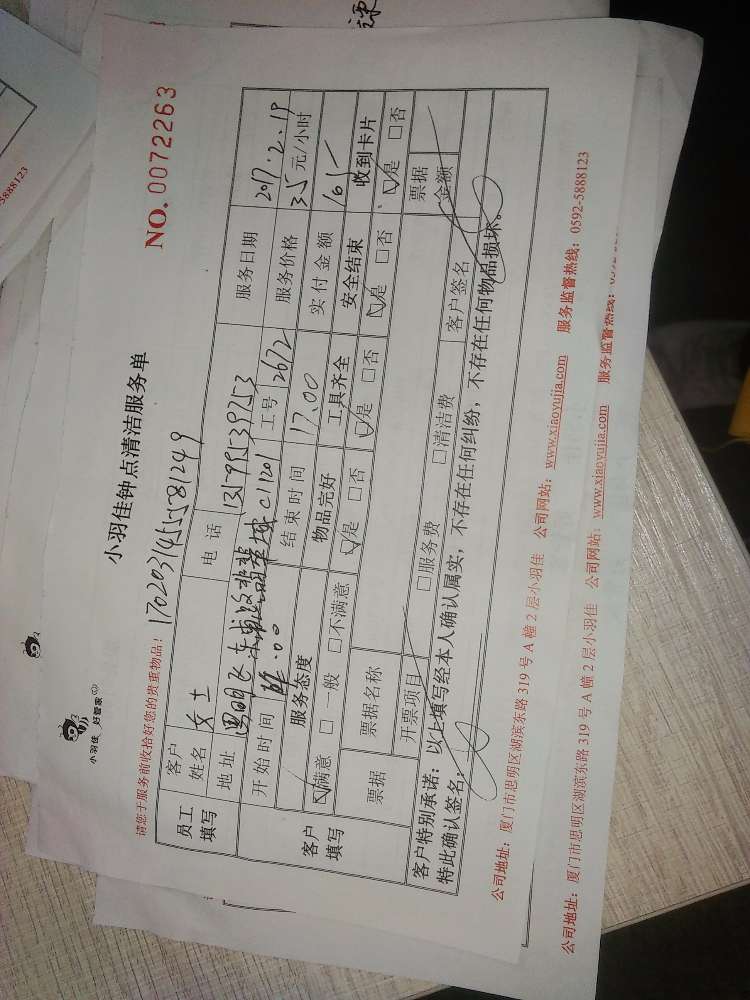 小羽佳 好管家
小羽佳钟点清洁服务单
NO. 0072263
请您于服务前收拾好您的贵重物品！
170203145581249
员工填写 客户姓名 女士 电话 13799539753 服务日期 2017.2.19
地址 C1201 工号 2672 服务价格 35元/小时
客户填写 开始时间 结束时间 17:00 实付金额
服务态度 物品完好 工具齐全 安全结束 收到卡片
☑满意 □一般 □不满意 ☑是 □否 ☑是 □否 ☑是 □否 ☑是 □否
票据 票据名称 票据金额
开票项目 □服务费 □清洁费
客户特别承诺：以上填写经本人确认属实，不存在任何纠纷，不存在任何物品损坏。
特此确认签名： 客户签名
公司地址：厦门市思明区湖滨东路 319 号 A 幢 2 层小羽佳 公司网站：www.xiaoyujia.com 服务监督热线：0592-5888123
公司地址：厦门市思明区湖滨东路 319 号 A 幢 2 层小羽佳 公司网站：www.xiaoyujia.com 服务监督热线：
5888123